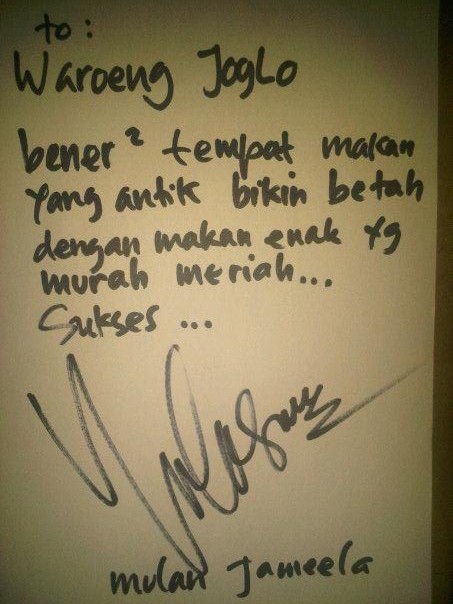 to :
Waroeng Joglo
bener² tempat makan
yang antik bikin betah
dengan makan enak yg
murah meriah...
Sukses ...
mulan Jameela